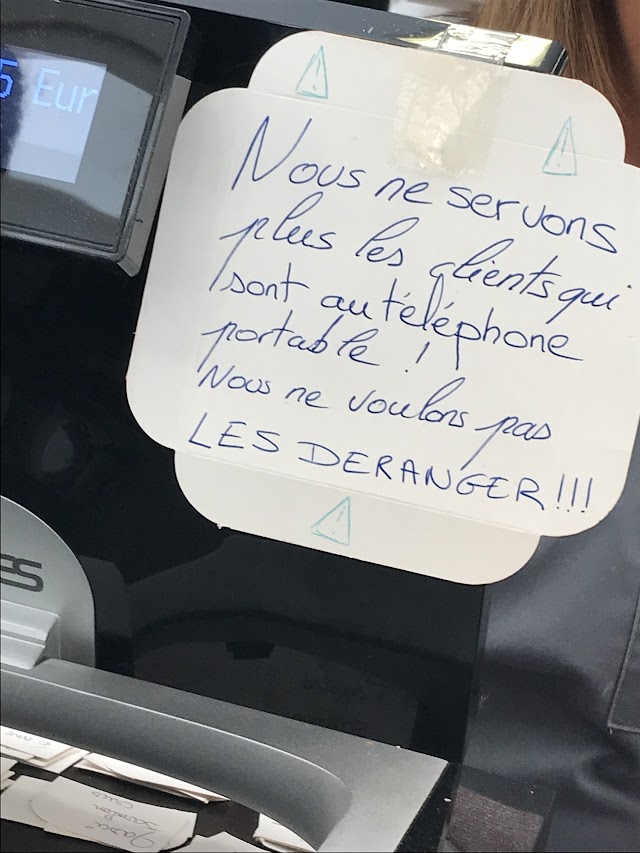 5 Eur
Nous ne servons
plus les clients qui
sont au téléphone
portable !
Nous ne voulons pas
LES DERANGER !!!
ES